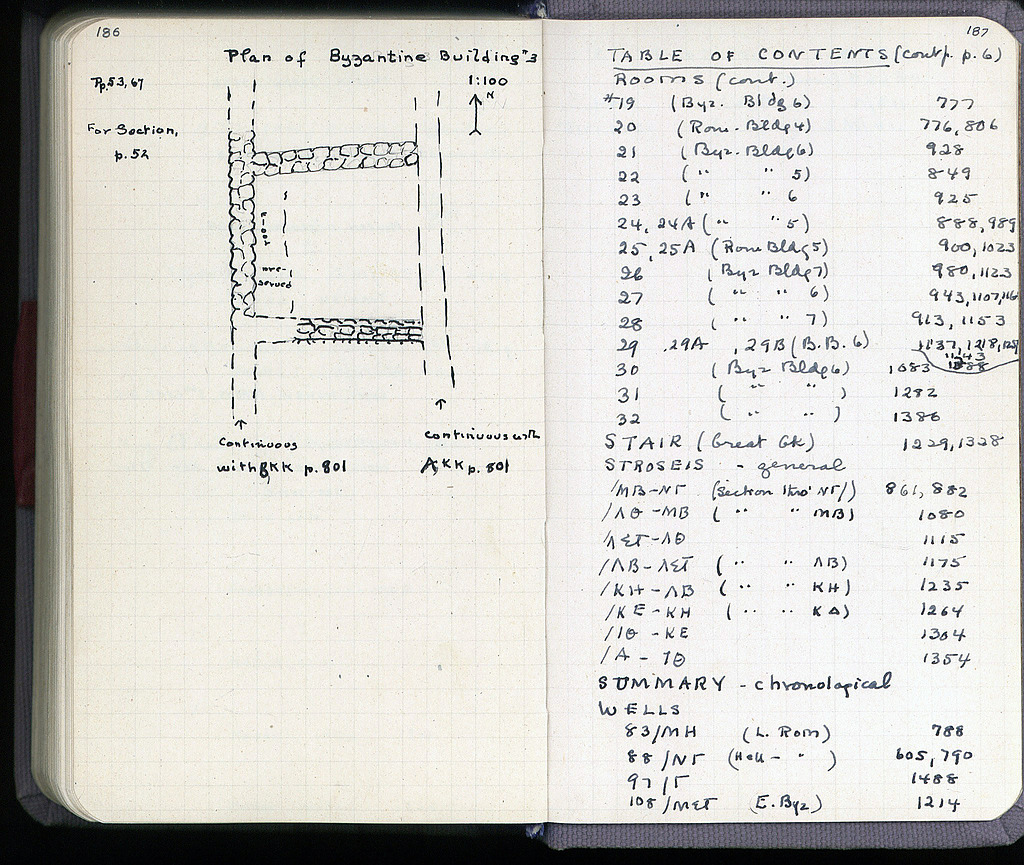 186
Plan of Byzantine Building #3
Pp. 53, 67
1:100
N
For Section,
p. 52
pre-
served
Continuous
with BKK p. 801
continuous with
AKK p. 801
187
TABLE OF CONTENTS (cont fr. p. 6)
ROOMS (cont.)
#19 (Byz. Bldg 6) 777
20 (Rom. Bldg 4) 776, 806
21 (Byz. Bldg 6) 928
22 (" " 5) 849
23 (" " 6 925
24, 24A (" " 5) 888, 989
25, 25A (Rom Bldg 5) 900, 1023
26 (Byz Bldg 7) 980, 1123
27 (" " 6) 943, 1107, 1116
28 (" " 7) 913, 1153
29 , 29A , 29B (B.B. 6) 1137, 1218,
1243
30 (Byz Bldg 6) 1083
31 (" " ) 1282
32 (" " ) 1386
STAIR (Great Gk) 1229, 1328
STROSEIS - general
/MB-ΝΓ (Section thro' ΝΓ/) 861, 882
/ΛΘ-MB (" " MB) 1080
/ΛΣΤ-ΛΘ 1115
/ΛΒ-ΛΣΤ (" " ΛΒ) 1175
/ΚΗ-ΛΒ (" " ΚΗ) 1235
/ΚΕ-ΚΗ (" " ΚΔ) 1264
/ΙΘ-ΚΕ 1304
/Α-ΙΘ 1354
SUMMARY - chronological
WELLS
83/ΜΗ (L. Rom) 788
88/ΝΓ (Hell- " ) 605, 790
97/Γ 1488
108/ΜΣΤ (E. Byz) 1214